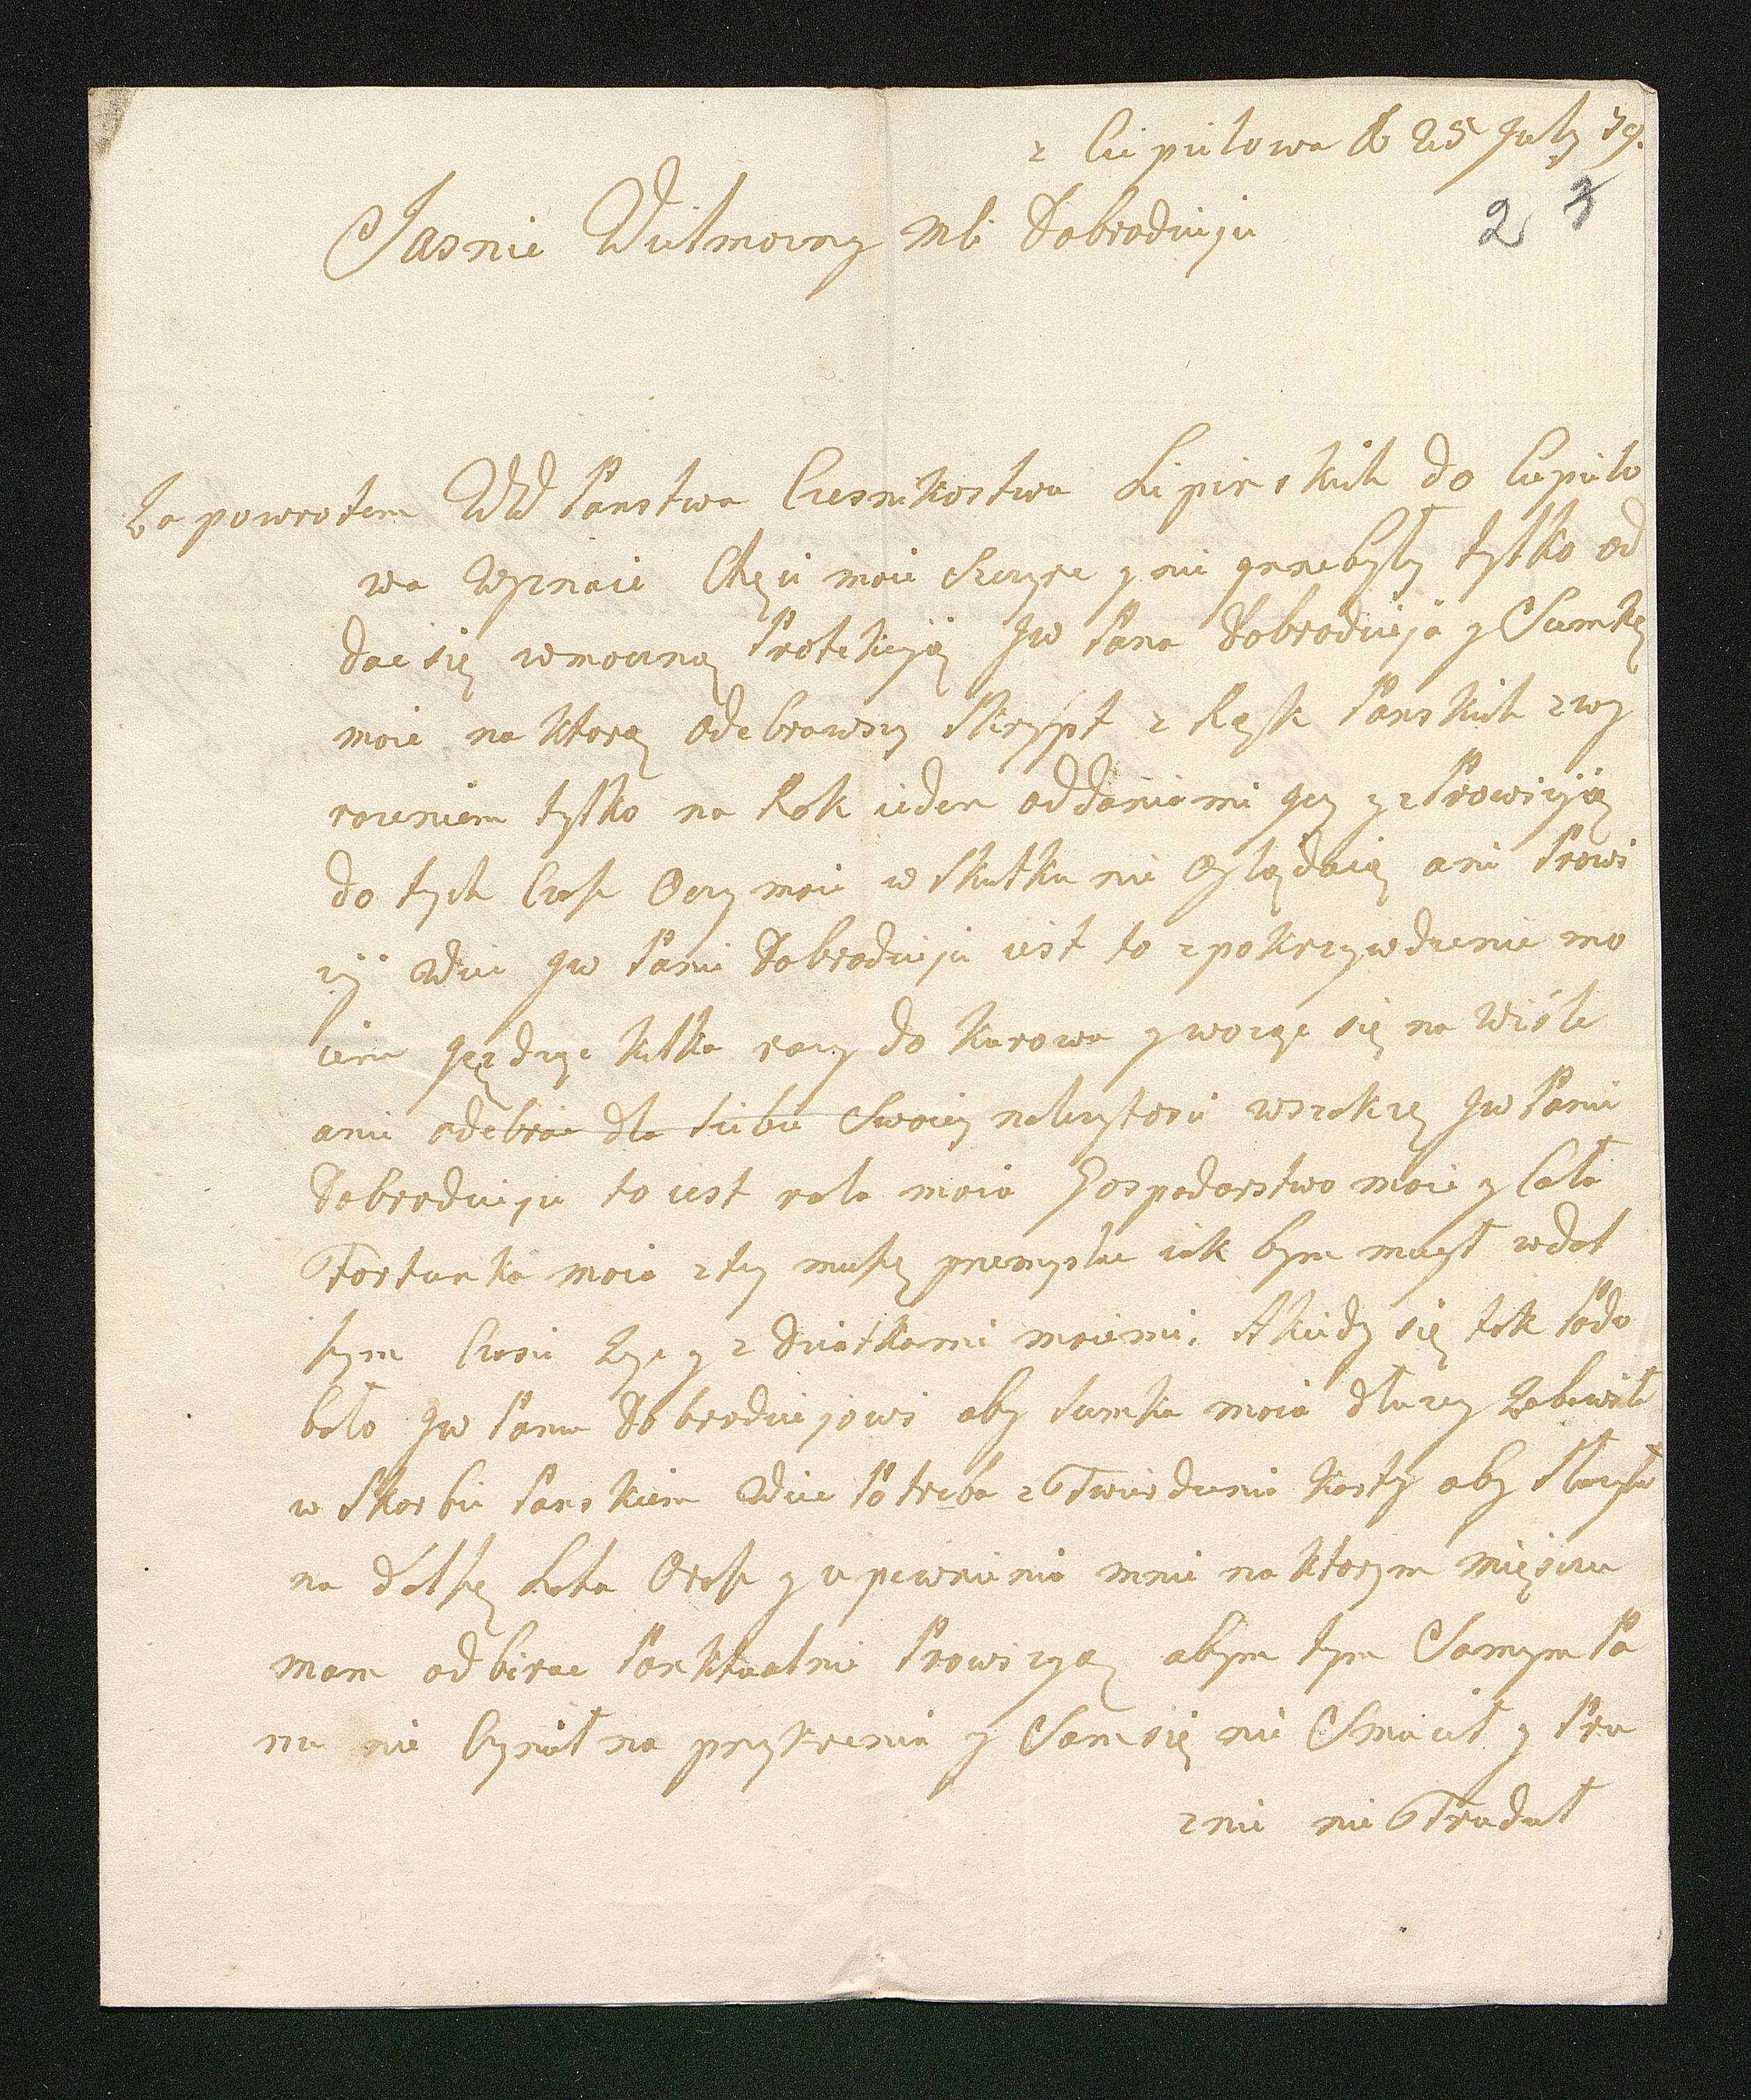 z Ciepielowa d 25 July 79.
2 3
Jasnie Wielmozny Mci Dobrodzieju
Za powrotem WW Panstwa Czesnikostwa Lipinskich do Ciepielo
wa Wyznaie Chęci moie Szczyre y nie były tylko od
dac się wmocną Protekcyią Jw Pana Dobrodzieja y Sumkę
moie na ktorą Odebrawszy Skrypt z Rąk Panskich zwy
razeniem tylko na Rok ieden oddania mi Jey y z Prowizyią
do tych Czas Oczy moie w skutku nie Oglądaią ani Prowi
zyi Wiec Jw Panie Dobrodzieju iest to zpokrzywdzenie mo
iem Jezdząc kilka razy do Kurowa y wożąc się na Wiśle
anie odebrac dla siebie Swoiey należytosci wszakze Jw Panie
Dobrodzieju to iest rola moia Gospodarstwo moie y Cała
Fortunka moia ztey muszę przemyslac iak bym mugł wdal
szym Czasie życ y z Dziatkami moiemi. A kiedy się tak Podo
bało Jw Panu Dobrodziejowi aby sumka moia dłuzey zabawiła
w Skarbie Panskiem Wiec Potrzeba zTwierdzenia Karty aby Słuzyła
na dalsze Lata Oraz y upewnienia mnie na ktorym mieyscu
mam odbierac Punktualnie Prowizyą abym tym Samym Pa
nu nie Czynił na przykrzenia y Sam się nie Smucił y Pru
znie nie Trudał